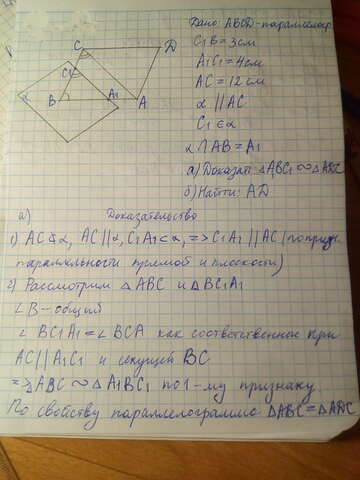 Дано: ABCD-параллелогр
C₁B = 3 см
A₁C₁ = 4 см
AC = 12 см
α || AC
C₁ ∈ α
α ∩ AB = A₁
а) Доказат: △ABC₁ ∾ △ADC
б) Найти: AD
C
D
C₁
α
B
A₁
A
а) Доказательство
1) AC ⊄ α, AC || α, C₁A₁ ⊂ α, => C₁A₁ || AC (по призн.
параллельности прямой и плоскости)
2) Рассмотрим △ABC и △BC₁A₁
∠B - общий
∠BC₁A₁ = ∠BCA как соответственные при
AC || A₁C₁ и секущей BC
=> △ABC ∾ △A₁BC₁ по 1-му признаку
По свойству параллелограмма △ABC = △ADC